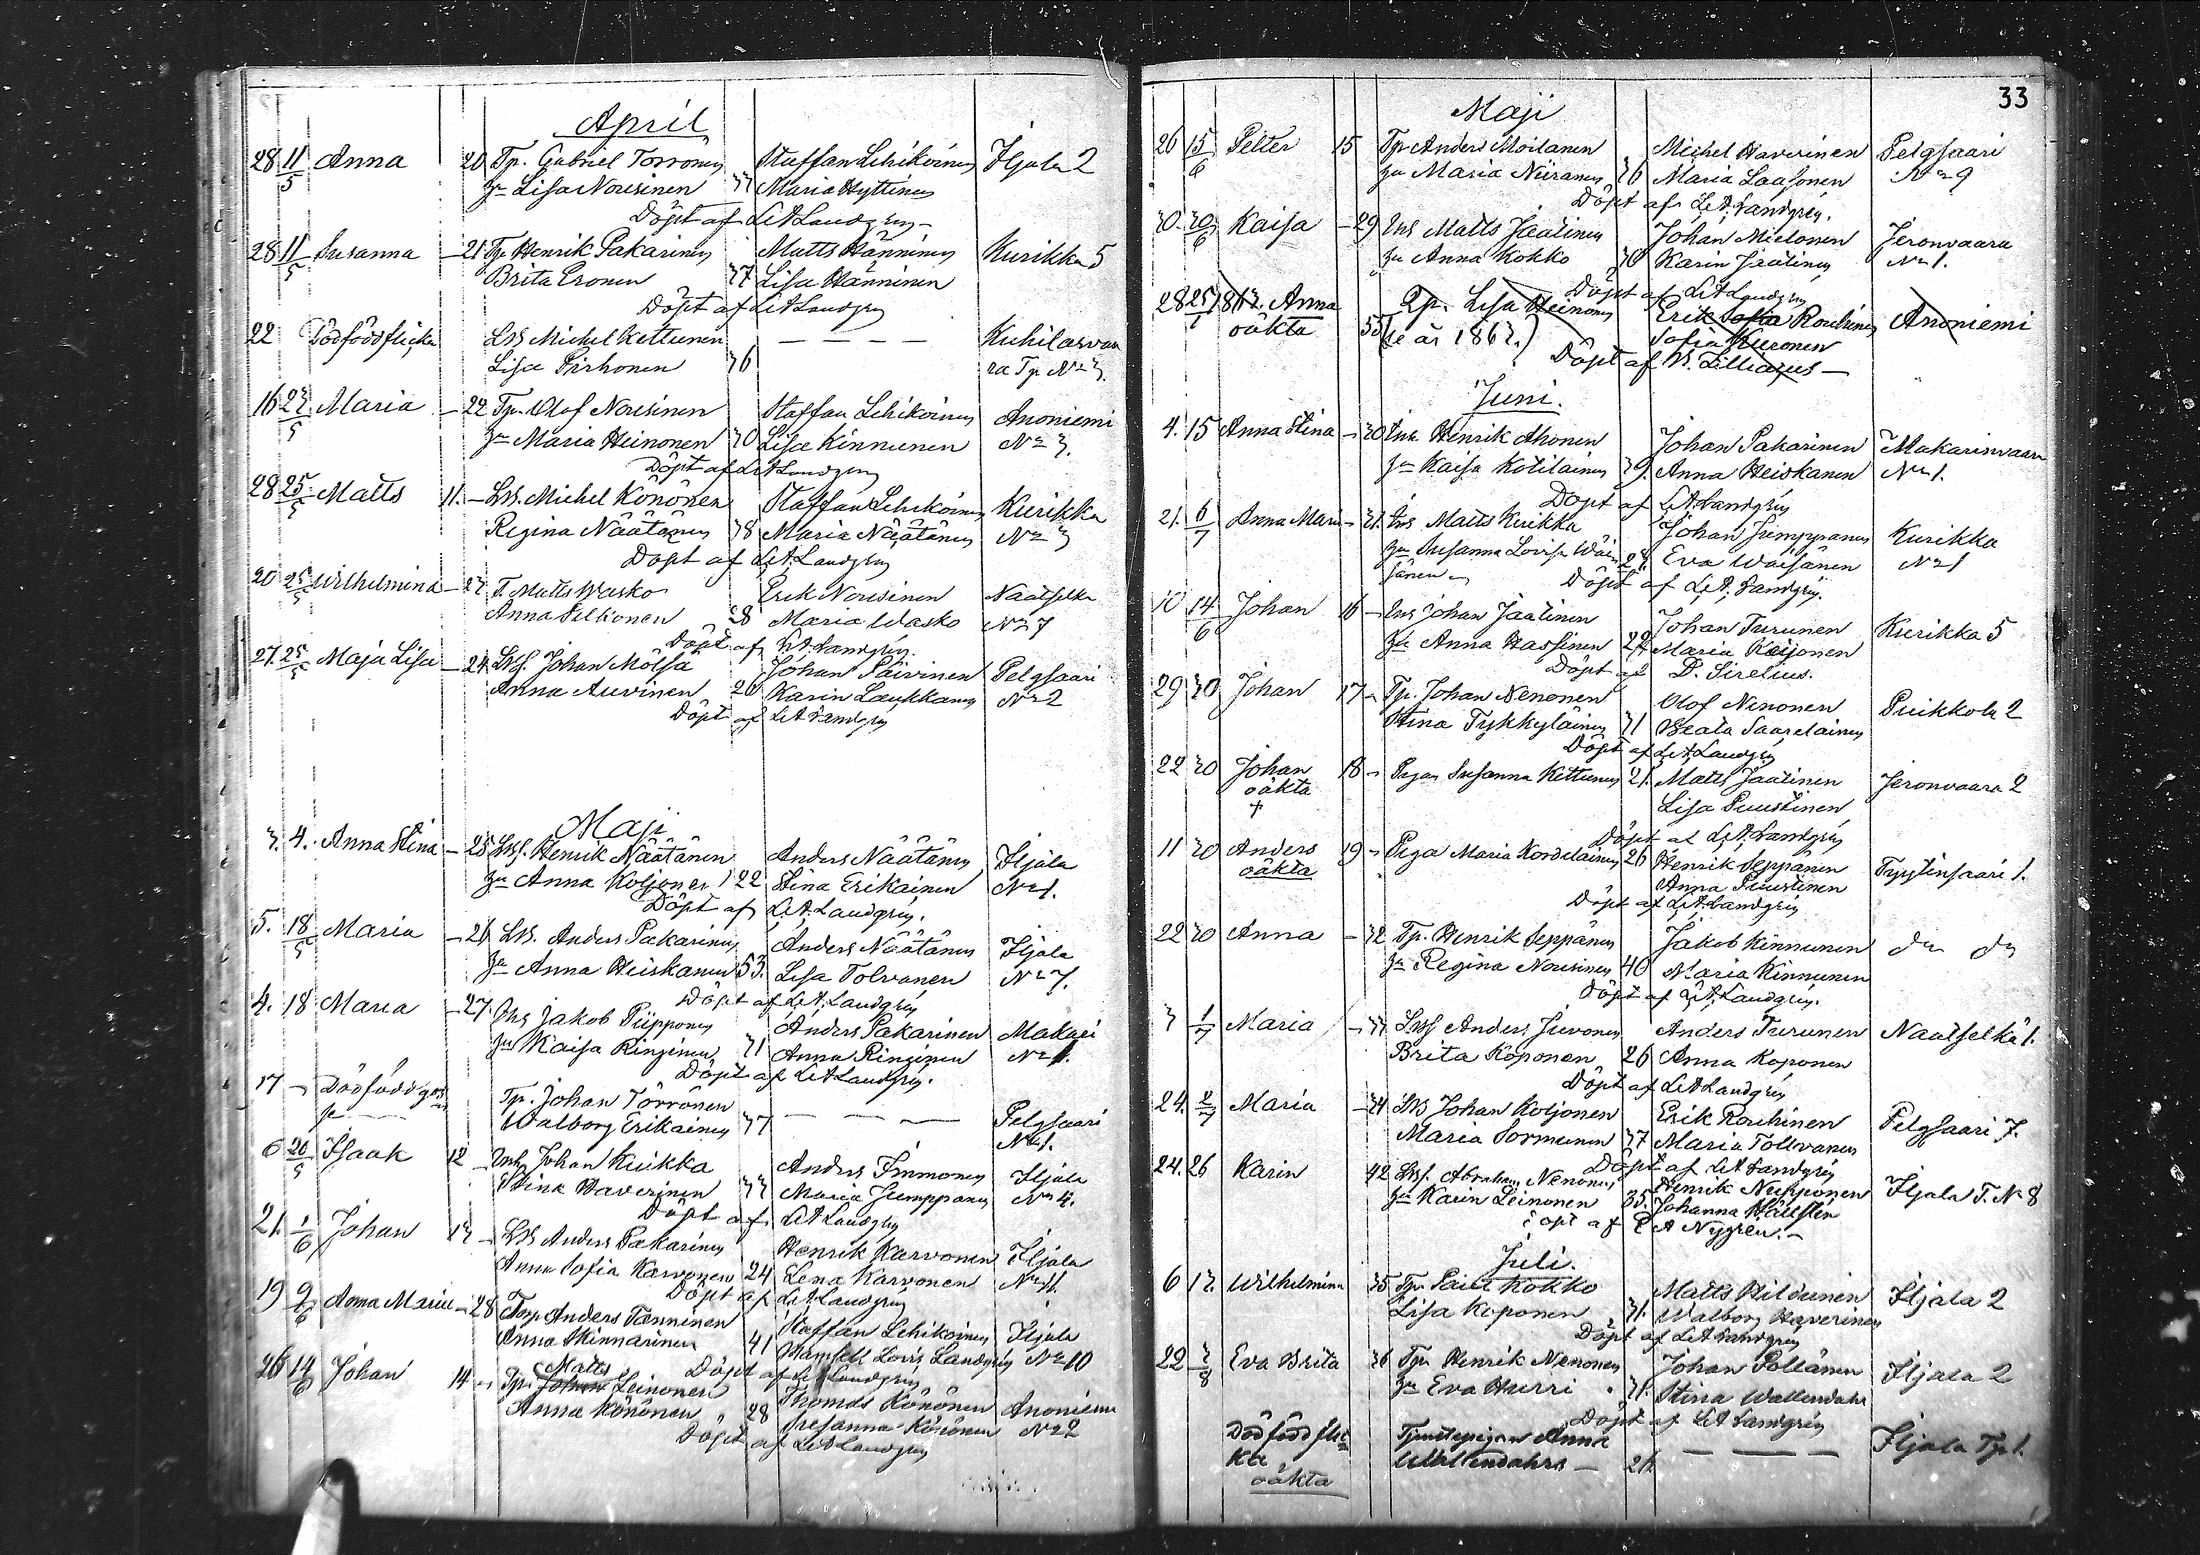 April
28 11/5 Anna 20 Tp. Gabriel Torrönen Staffan Lehikoinen Iljala 2
hu Lisa Nousinen 33 Maria Hyttinen
Döpt af L A Landgren
28 11/5 Susanna - 21 Tp. Henrik Pakarinen Matts Hänninen Kurikka 5
Brita Eronen 37 Lisa Hänninen
Döpt af L A Landgren
22 Dödfödd flicka Lbs Michel Kettunen — — — — Kuhilasvaa
Lisa Pirhonen 36 ra Tp No 3.
16 23/5 Maria - 22 Tp. Olof Nousinen Staffan Lehikoinen Anoniemi
hu Maria Heinonen 30 Lisa Kinnunen No 3.
Döpt af L A Landgren
28 25/5 Matts 11. - Lbs. Michel Könönen Staffan Lehikoinen Kurikka
Regina Näätänen 38 Maria Näätänen No 3
Döpt af L A Landgren
20 25/5 Wilhelmina - 23 T. Matts Wasko Erik Nousinen Naatselkä
Anna Silkonen 28 Maria Wasko No 7
Döpt af L A Landgren
27 25/5 Maja Lisa - 24 Lbs. Johan Mölsä Johan Päivinen Pelgsaari
Anna Auvinen 26 Karin Laukkanen No 2
Döpt af L A Landgren
Maji
3. 4. Anna Stina - 25 Lbs. Henrik Näätänen Anders Näätänen Iljala
hu Anna Koljonen 22 Stina Erikainen No 1.
Döpt af L A Landgren.
5. 18/5 Maria - 26 Lbs. Anders Pakarinen Anders Näätänen Iljala
hu Anna Heiskanen 33. Lisa Tolvanen No 7.
Döpt af L A Landgren
4. 18 Maria - 27 Inhs Jakob Piipponen Anders Pakarinen Makari
hu Kaisa Ringinen 31 Anna Ringinen No 1.
Döpt af L A Landgren.
17 - Dödfödd gos Tp. Johan Törrönen — — —
se — Walborg Erikainen 37 Pelgsaari
No 1.
6 26/5 Isaak 12 - Inh. Johan Kuikka Anders Immonen Iljala
Stina Haverinen 33 Maria Jumppanen No 4.
Döpt af L A Landgren
21. 1/6 Johan 13 - Lbs Anders Pakarinen Henrik Karvonen Iljala
Anna Sofia Karvonen 24 Lena Karvonen No 11.
Döpt af L A Landgren
19 9/6 Anna Maria - 28 Torp. Anders Tanninen Staffan Lehikoinen Iljala
Anna Skinnarinen 41 Mamsell Lovis Landgren No 10
Döpt af L A Landgren
Matts
26 14/6 Johan 14 - Tp. Johan Leinonen Thomas Könönen Anoniemi
Anna Könönen 28 Susanna Könönen No 2
Döpt af L A Landgren
33
Maji
26 15/6 Petter 15 Tp Anders Moilanen Michel Haverinen Pelgsaari
hu Maria Niiranen 36 Maria Laasonen No 9
Döpt af L. A. Landgren.
30 30/6 Kaisa - 29 Inh Matts Jaatinen Johan Mielonen Jeronvaara
hu Anna Kokko 30 Karin Jaatinen No 1.
Döpt af L A Landgren
28 25/1 1863. Anna Tp. Lisa Heinonen Erik Rouhinen Anoniemi
oäkta 35 (se år 1863.) Sofia Kuronen
Döpt af W. Lillialus —
Juni.
4. 15 Anna Stina - 30 Inh Henrik Ahonen Johan Pakarinen Makarinvaara
hu Kaisa Kotilainen 39. Anna Heiskanen No 1.
Döpt af L A Landgren
21. 6/7 Anna Maria - 31. Inh Matts Kuikka Johan Jumppanen Kurikka
hu Susanna Lovisa Wäi 28. Eva Waisänen No 1
sänen Döpt af L. A. Landgren.
10 14/6 Johan 16 - Inh Johan Jaatinen Johan Turunen Kurikka 5
hu Anna Hassinen 24 Maria Koijonen
Döpt af D. Sirelius.
29 30 Johan 17 - Tp. Johan Nenonen Olof Nenonen Puikkola 2
Stina Tykkyläinen 31 Beata Saarelainen
Döpt af L A Landgren
22 30 Johan 18 - Pigan Susanna Kettunen 21. Matts Jaatinen Jeronvaara 2
oäkta Lisa Puustinen
+ Döpt af L A Landgren
11 30 Anders 19 - Piga Maria Kordelainen 26 Henrik Seppänen Tyytinsaari 1.
oäkta Anna Puustinen
Döpt af L A Landgren
22 30 Anna - 32 Tp. Henrik Seppänen Jakob Kinnunen do do
hu Regina Nousinen 40 Maria Kinnunen
Döpt af L A Landgren.
3 1/7 Maria - 33 Lbs Anders Juvonen Anders Turunen Naatselkä 1.
Brita Koponen 26 Anna Koponen
Döpt af L A Landgren
24. 2/7 Maria - 34 Lbs Johan Koljonen Erik Rouhinen Pelgsaari 7.
Maria Sormunen 37 Maria Tolvanen
Döpt af L A Landgren
24. 26 Karin 42 Lbs. Abraham Nenonen Henrik Nupponen Iljala T. No 8
hu Karin Leinonen 35. Johanna Hällsten
Döpt af A Nygrén. —
Juli.
6 13. Wilhelmina 35 Tp. Paul Kokko Matts Hildunen Iljala 2
Lisa Koponen 31. Walborg Haverinen
Döpt af L A Landgren
22 3/8 Eva Brita 36 Tp. Henrik Nenonen Johan Pöllänen Iljala 2
hu Eva Hurri 31. Stina Wallendahr
Döpt af L A Landgren
Dödfödd flic Tjenstepigan Anna — — Iljala Tp 1.
ka Wallendahrs — 26
oäkta